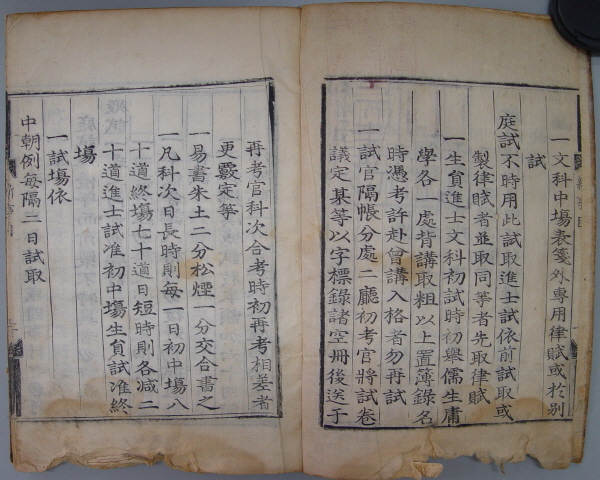 一文科中場表箋外專用律賦或於別
試
庭試不時用此試取進士試依前試取或
製律賦者並取同等者先取律賦
一生員進士文科初試時初舉儒生庸
學各一處背講取粗以上置簿錄名
時憑考許赴曾講入格者勿再試
一試官隔帳分處二廳初考官將試卷
議定某等以字標錄諸空冊後送于
再考官科次合考時初再考相差者
更覈定等
一易書朱土二分松煙一分交合書之
一凡科次日長時則每一日初中場八
十道終場七十道日短時則各减二
十道進士試准初中場生員試准終
場
一試場依
中朝例每隔二日試取